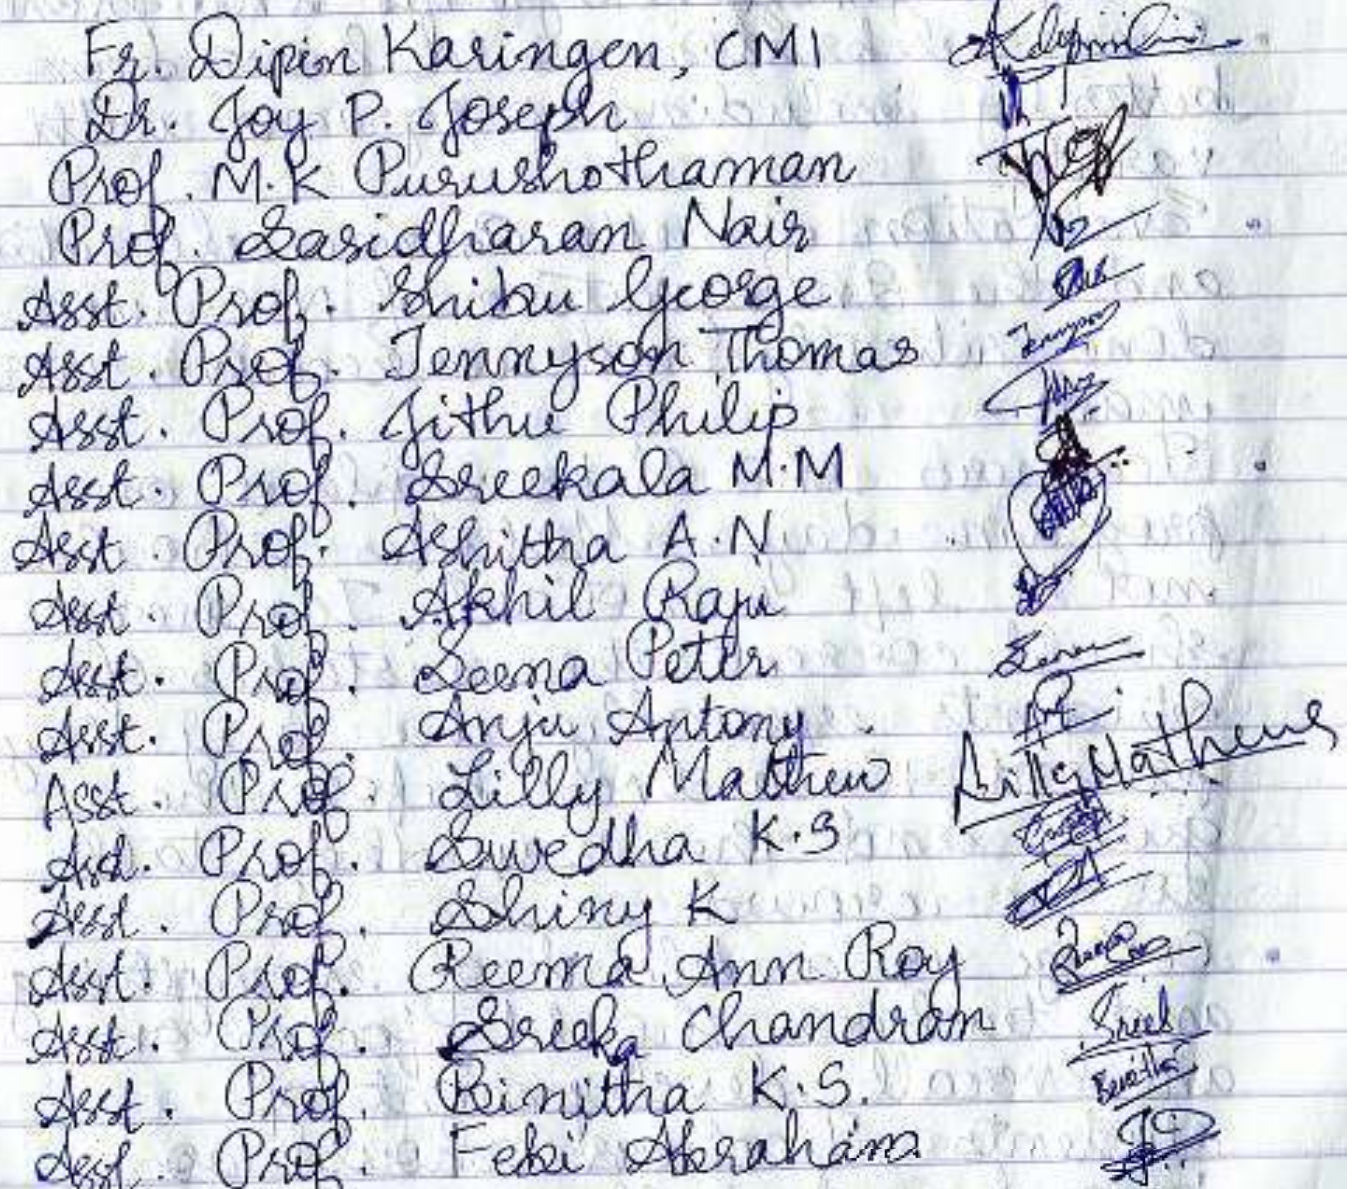 Fr. Dipin Karingen, CMI
Dr. Joy P. Joseph
Prof. M.K Purushothaman
Prof. Sasidharan Nair
Asst. Prof. Shibu George
Asst. Prof. Tennyson Thomas
Asst. Prof. Jithu Philip
Asst. Prof. Sreekala M.M
Asst. Prof. Ashitha A.N
Asst. Prof. Akhil Raju
Asst. Prof. Seena Peter
Asst. Prof. Anju Antony
Asst. Prof. Lilly Mathew Lilly Mathews
Asst. Prof. Swedha K.S
Asst. Prof. Shiny K
Asst. Prof. Reema Ann Roy
Asst. Prof. Sreeka Chandran
Asst. Prof. Binitha K.S.
Asst. Prof. Febi Abraham